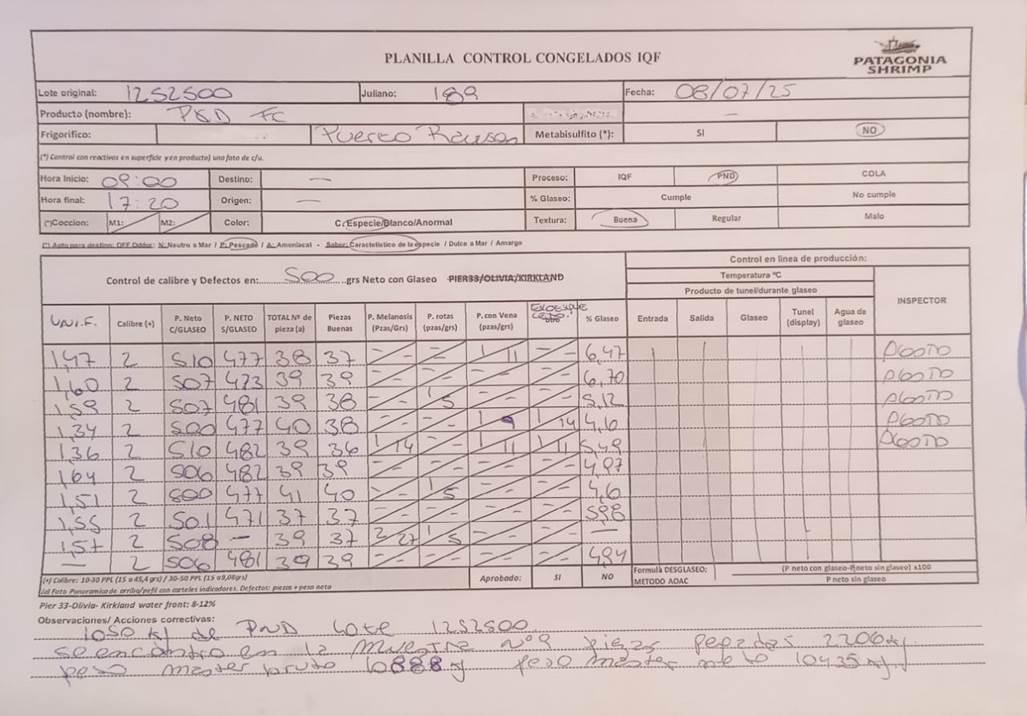 PLANILLA CONTROL CONGELADOS IQF
PATAGONIA SHRIMP
Lote original: 1252500 Juliano: 189 Fecha: 08/07/25
Producto (nombre): P&D FC —
Frigorifico: Puerto Rawson Metabisulfito (*): SI NO
(*) Control con reactivos en superficie y en producto) una foto de c/u.
Hora Inicio: 09:00 Destino: — Proceso: IQF PND COLA
Hora final: 17:20 Origen: — % Glaseo: Cumple No cumple
(*)Coccion: M1: M2: Color: C/Especie/Blanco/Anormal Textura: Buena Regular Malo
N: Neutro a Mar / P: Pescado / A: Amoniacal - Sabor: Caracteristico de la especie / Dulce a Mar / Amargo
Control de calibre y Defectos en: 500 grs Neto con Glaseo PIER33/OLIVIA/KIRKLAND
Control en linea de producción:
Temperatura ºC
Producto de tunel/durante glaseo
UNIF. Calibre (+) P. Neto C/GLASEO P. NETO S/GLASEO TOTAL Nº de pieza (a) Piezas Buenas P. Melanosis (Pzas/Grs) P. rotas (pzas/grs) P. con Vena (pzas/grs) % Glaseo Entrada Salida Glaseo Tunel (display) Agua de glaseo INSPECTOR
1,47 2 510 477 38 37 -/- -/- 1/11 -/- 6,47
1,60 2 507 473 39 39 -/- -/- -/- -/- 6,70
1,59 2 507 481 39 38 -/- 1/5 -/- -/- 5,12
1,34 2 500 477 40 38 -/- -/- 1/9 1/14 4,6
1,36 2 510 482 39 36 1/14 -/- 1/11 1/11 5,49
1,64 2 506 482 39 39 -/- -/- -/- -/- 4,97
1,51 2 500 477 41 40 -/- 1/5 -/- -/- 4,6
1,55 2 501 471 37 37 -/- -/- -/- -/- 5,98
1,57 2 508 — 39 37 2/27 1/5 -/- -/- —
— 2 506 481 39 39 -/- -/- -/- -/- 4,94
(+) Calibre: 10-30 PPL (15 a 45,4 grs) / 30-50 PPL (15 a 9,08grs)
Aprobado: SI NO Formula DESGLASEO: (P neto con glaseo-P(neto sin glaseo) x100
(a) Foto Panoramica de arriba/pefil con carteles indicadores. Defectos: piezas + peso neto
METODO AOAC P neto sin glaseo
Pier 33-Olivia- Kirkland water front: 8-12%
Observaciones/ Acciones correctivas:
1050 kg de PND Lote 1252500
se encontro en la muestra nº9 piezas pegadas 2206 kg
peso master bruto 10888 kg peso master neto 10435 kg